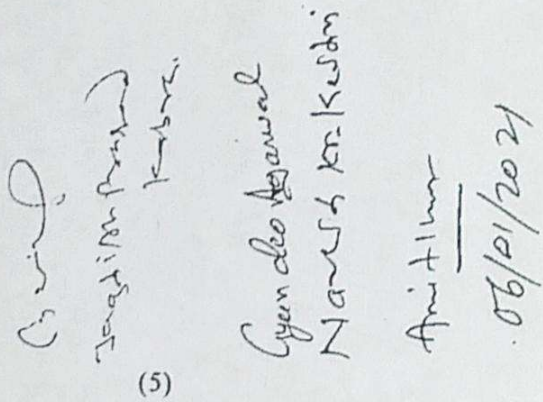 Jagdish Prasad
Kabra.
(5)
Gyan deo Agarwal
Naresh Kr. Kejdri
Amit
06/01/2021